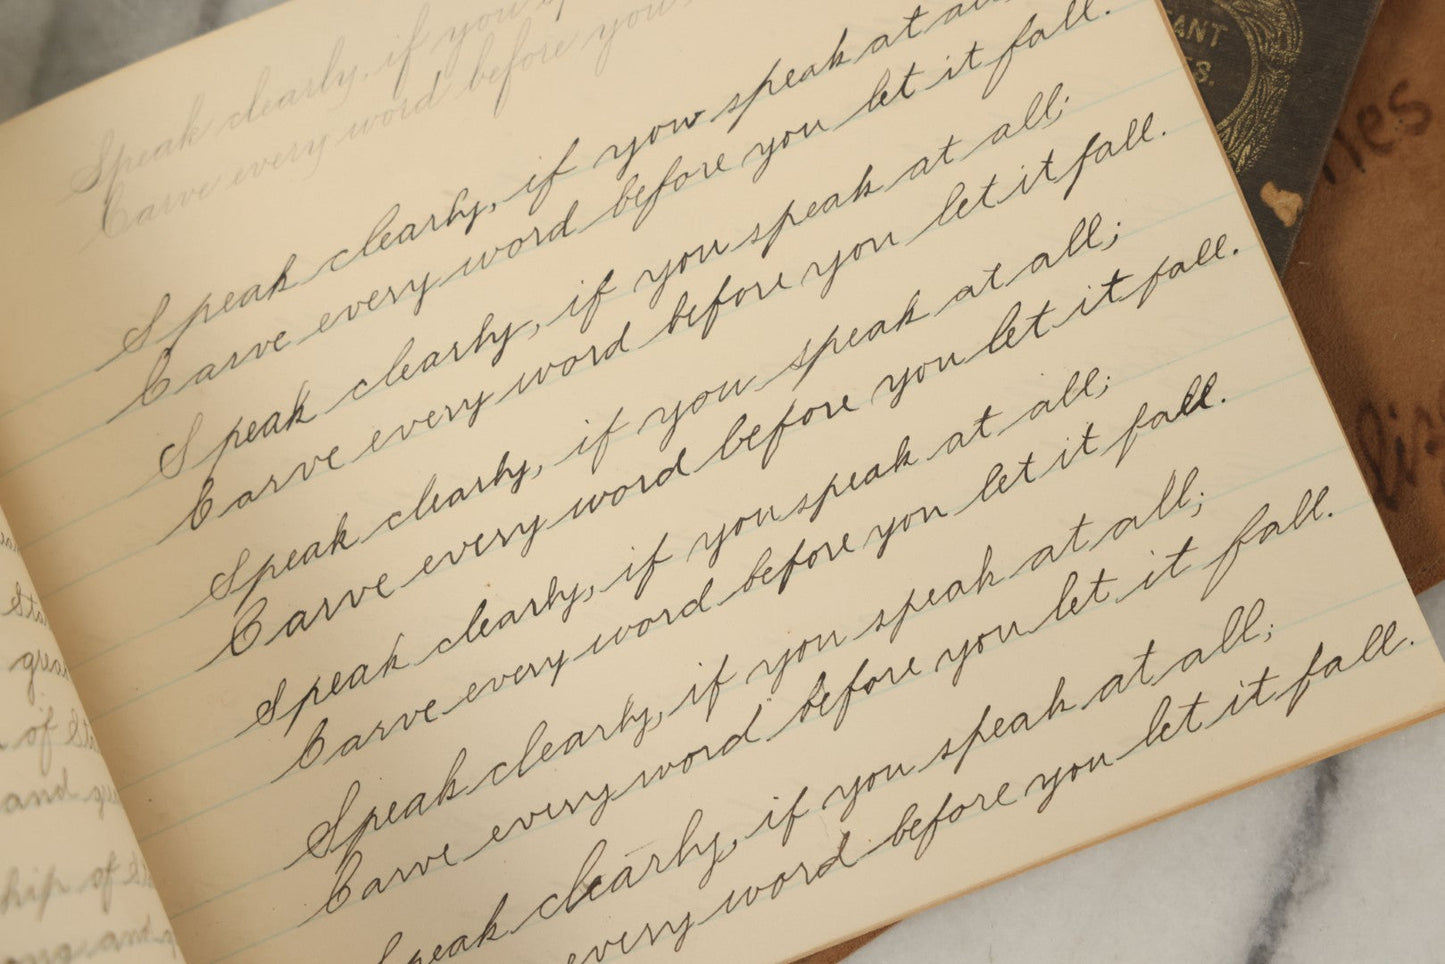 Speak clearly, if you
Carve every word before you
Speak clearly, if you speak at
Carve every word before you let it fall.
Speak clearly, if you speak at all;
Carve every word before you let it fall.
Speak clearly, if you speak at all;
Carve every word before you let it fall.
Speak clearly, if you speak at all;
Carve every word before you let it fall.
Speak clearly, if you speak at all;
Carve every word before you let it fall.
Speak clearly, if you speak at all;
every word before you let it fall.
of
and
hip of
and
ANT
S.